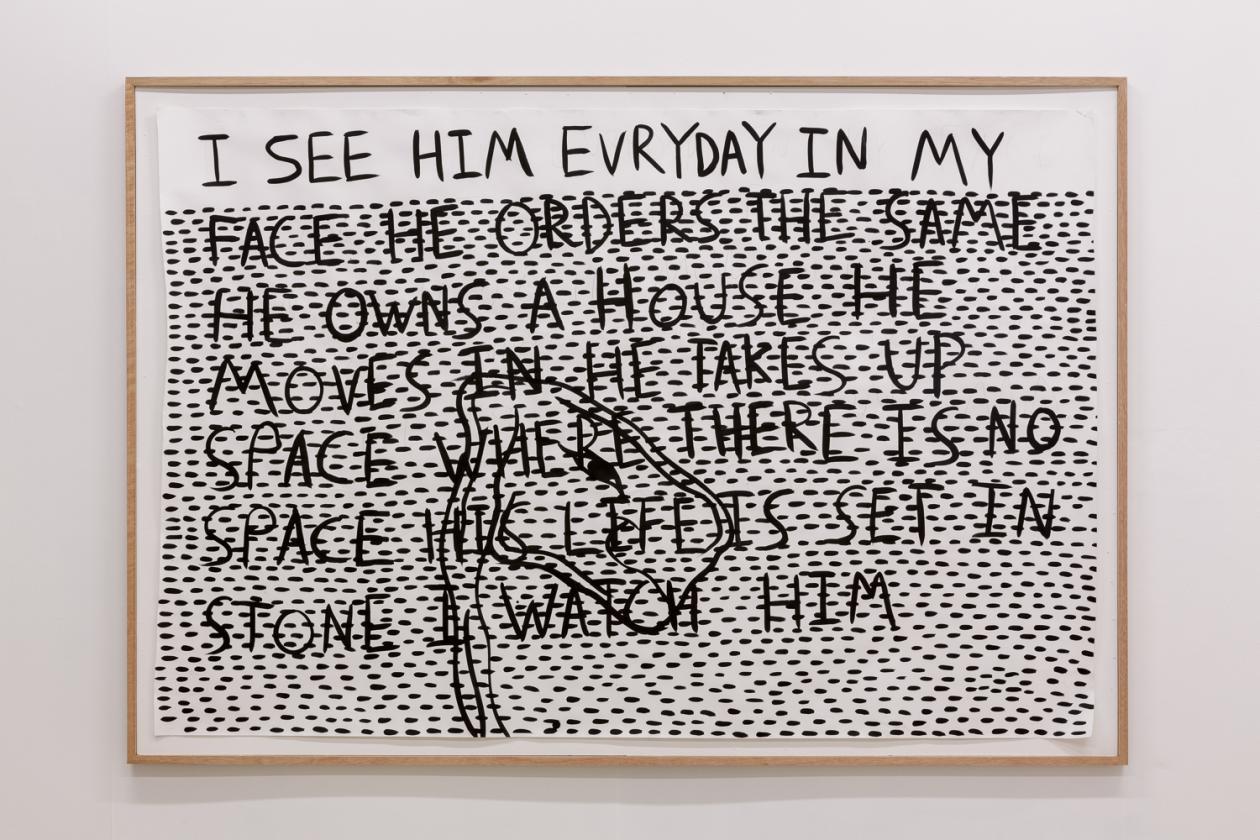 I SEE HIM EVRYDAY IN MY
FACE HE ORDERS THE SAME
HE OWNS A HOUSE HE
MOVES IN HE TAKES UP
SPACE WHERE THERE IS NO
SPACE HIS LIFE IS SET IN
STONE I WATCH HIM